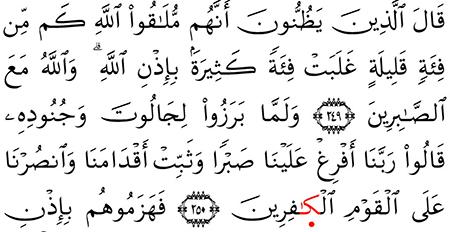 قَالَ ٱلَّذِينَ يَظُنُّونَ أَنَّهُم مُّلَٰقُوا۟ ٱللَّهِ كَم مِّن
فِئَةٖ قَلِيلَةٍ غَلَبَتۡ فِئَةٗ كَثِيرَةَۢ بِإِذۡنِ ٱللَّهِۗ وَٱللَّهُ مَعَ
ٱلصَّٰبِرِينَ ٢٤٩ وَلَمَّا بَرَزُوا۟ لِجَالُوتَ وَجُنُودِهِۦ
قَالُوا۟ رَبَّنَآ أَفۡرِغۡ عَلَيۡنَا صَبۡرٗا وَثَبِّتۡ أَقۡدَامَنَا وَٱنصُرۡنَا
عَلَى ٱلۡقَوۡمِ ٱلۡكٰٜفِرِينَ ٢٥٠ فَهَزَمُوهُم بِإِذۡنِ